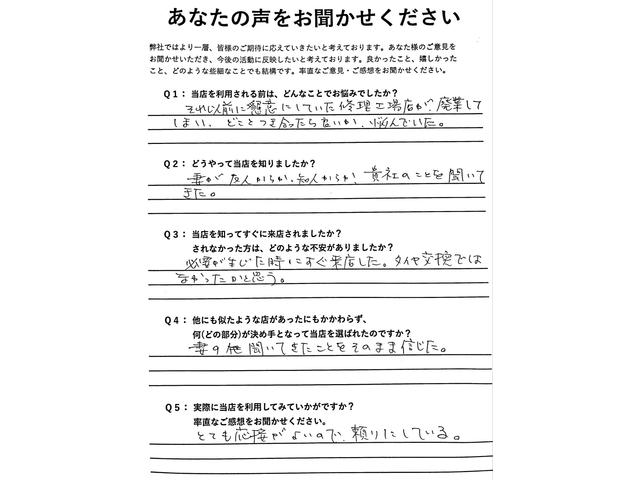 あなたの声をお聞かせください
弊社ではより一層、皆様のご期待に応えていきたいと考えております。あなた様のご意見を
お聞かせいただき、今後の活動に反映したいと考えております。良かったこと、嬉しかった
こと、どのような些細なことでも結構です。率直なご意見・ご感想をお聞かせください。
Q1： 当店を利用される前は、どんなことでお悩みでしたか？
それ以前に懇意にしていた修理工場店が、廃業して
しまい、どことつき合ったらないか、悩んでいた。
Q2： どうやって当店を知りましたか？
妻が友人からか、知人からか、貴社のことを聞いて
きた。
Q3： 当店を知ってすぐに来店されましたか？
されなかった方は、どのような不安がありましたか？
必要が生じた時にすぐ来店した。タイヤ交換では
なかったかと思う。
Q4： 他にも似たような店があったにもかかわらず、
何(どの部分)が決め手となって当店を選ばれたのですか？
妻の聞いてきたことをそのまま信じた。
Q5： 実際に当店を利用してみていかがですか？
率直なご感想をお聞かせください。
とても応接がよいので、頼りにしている。